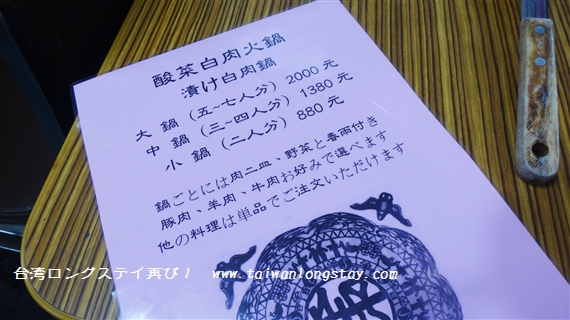 酸菜白肉火鍋
漬け白肉鍋
大 鍋（五~七人分）2000 元
中 鍋（三~四人分）1380 元
小 鍋（二人分）880 元
鍋ごとには肉二皿、野菜と春雨付き
豚肉、羊肉、牛肉お好みで選べます
他の料理は単品でご注文いただけます
台湾ロングステイ再び！ www.taiwanlongstay.com